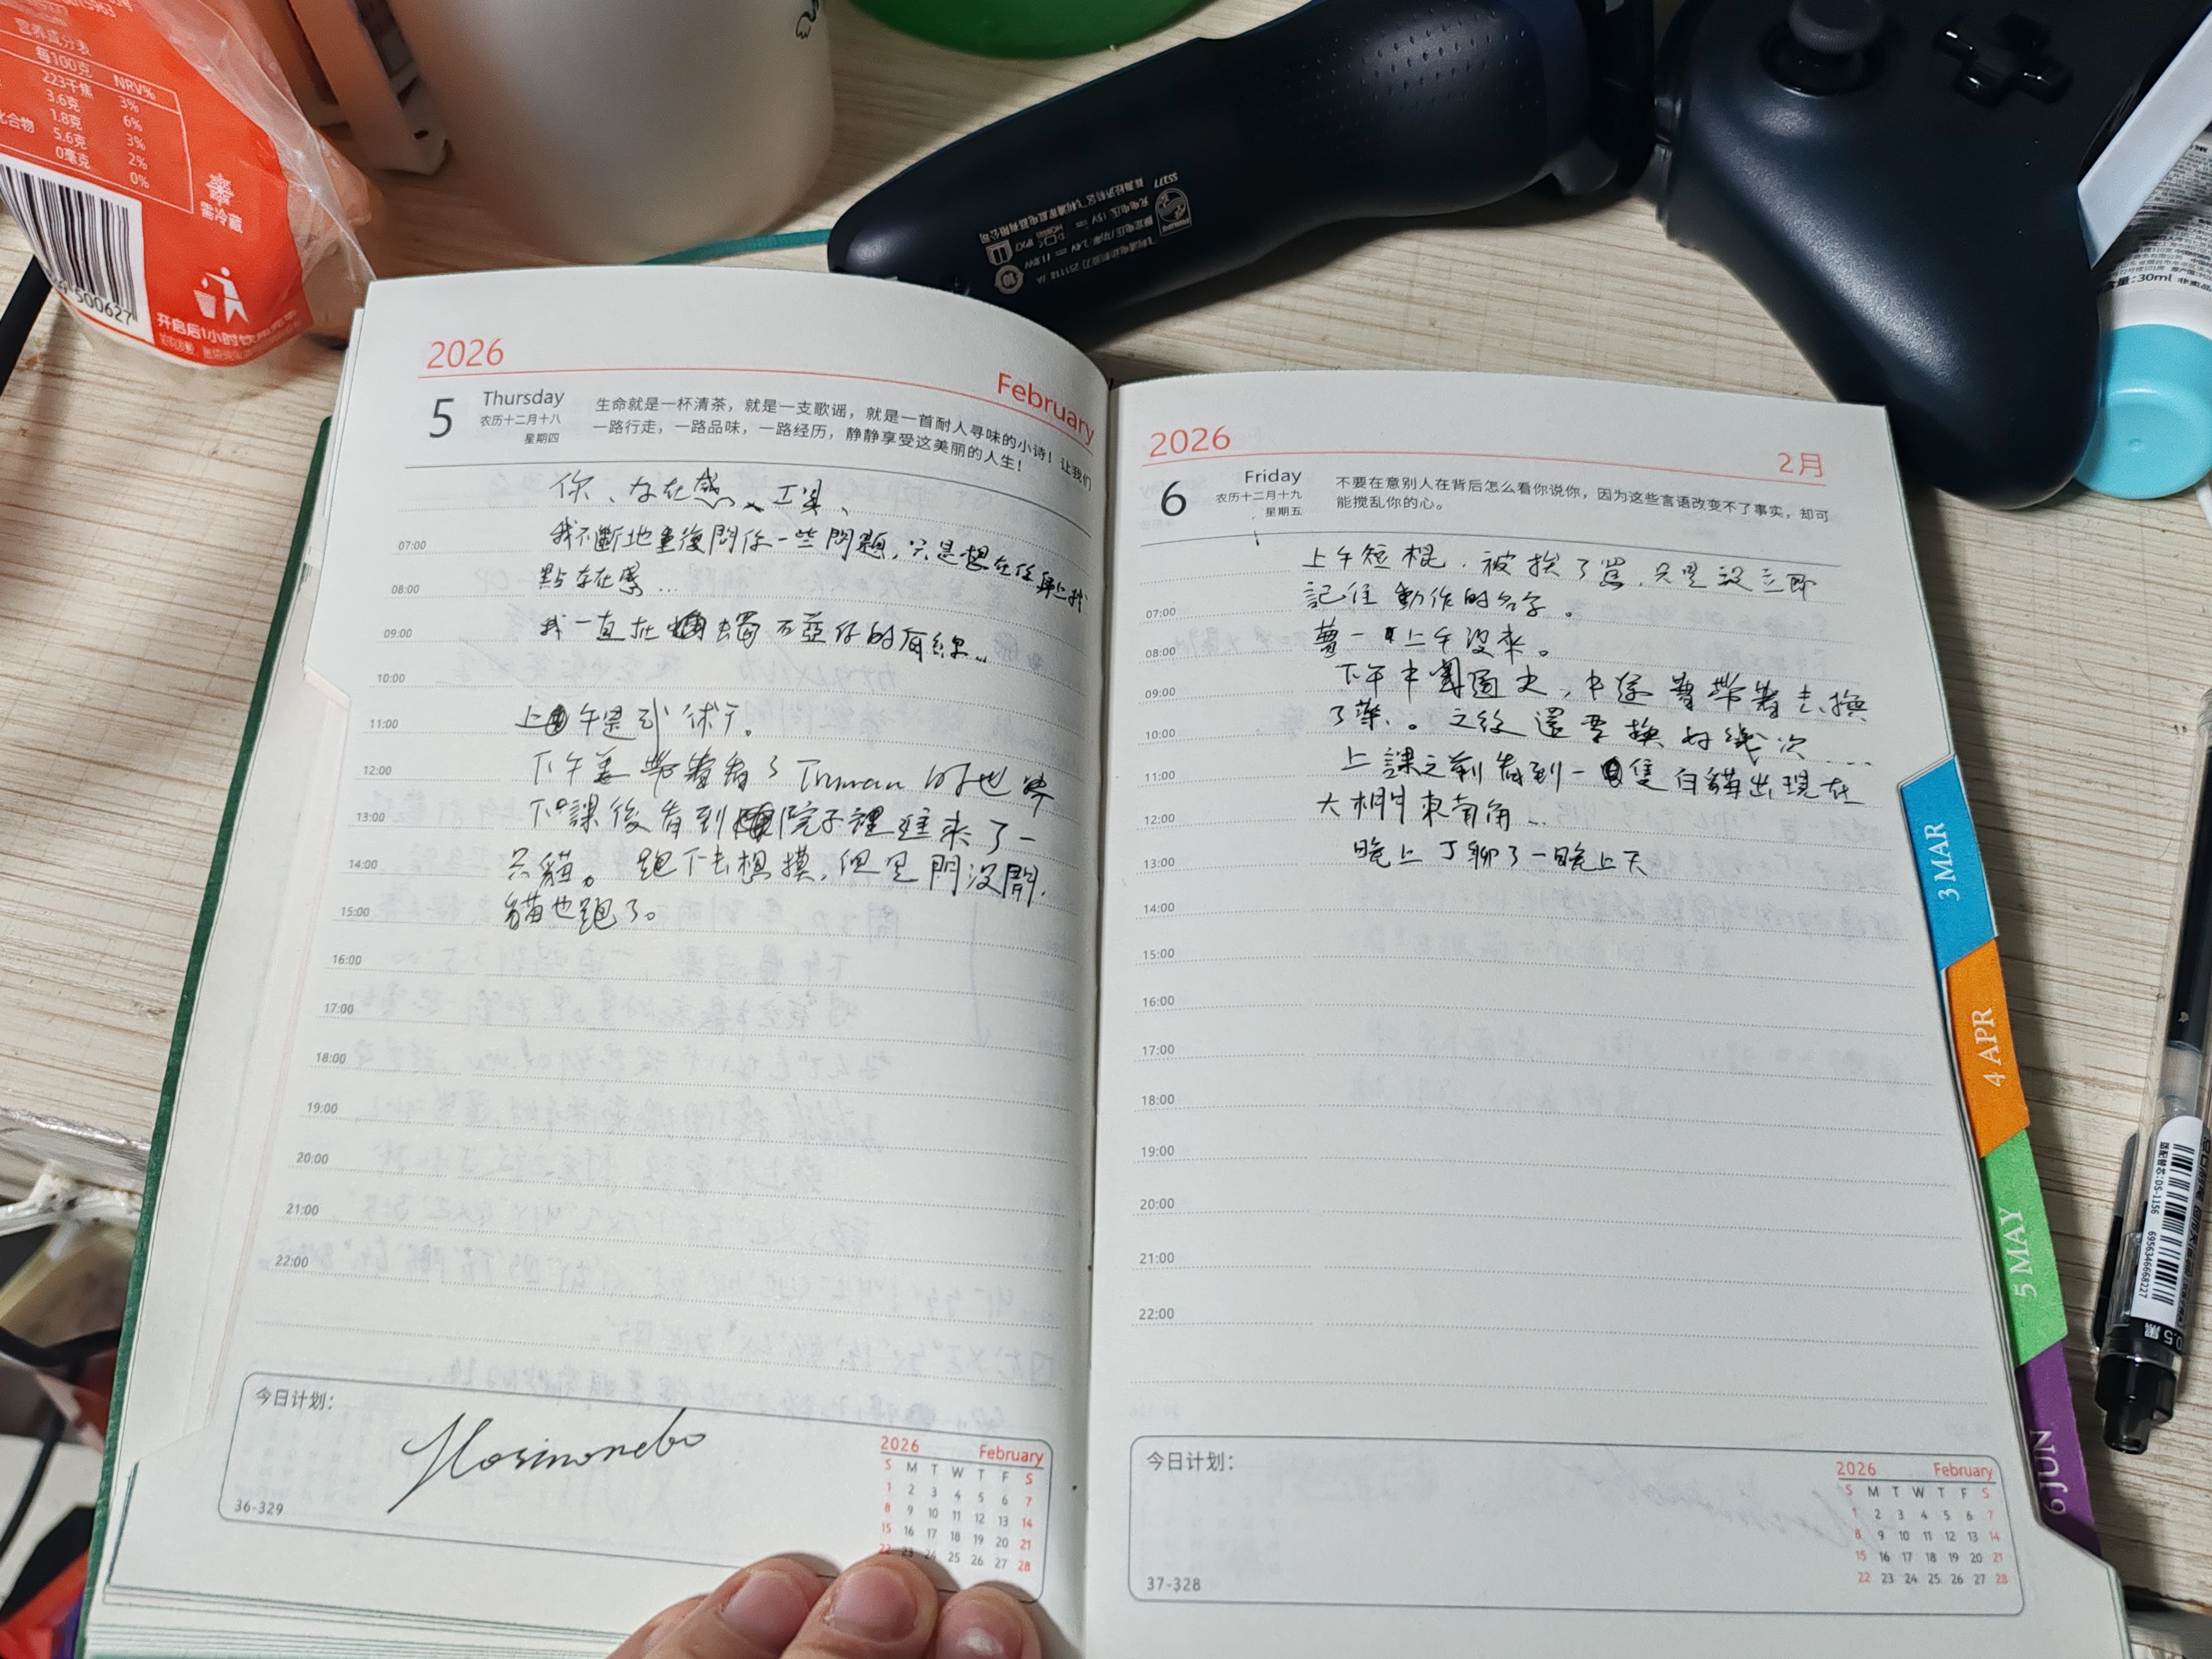 营养成分表
每100克 NRV%
223千焦 3%
3.6克 6%
1.8克 3%
5.6克 2%
0毫克 0%
需冷藏
500627
2026
February
5
Thursday
农历十二月十八
星期四
生命就是一杯清茶，就是一支歌谣，就是一首耐人寻味的小诗！让我们
一路行走，一路品味，一路经历，静静享受这美丽的人生！
你、存在感、工具、
我不斷地重復問你一些問題，只是想在你身上找
點存在感...
我一直在
上午是引
下午姜帶著看了Truman
下課後看到院子裡進來了一
只貓。跑下去想摸，但是門沒開，
貓也跑了。
07:00
08:00
09:00
10:00
11:00
12:00
13:00
14:00
15:00
16:00
17:00
18:00
19:00
20:00
21:00
22:00
今日计划：
36-329
2026 February
S M T W T F S
1 2 3 4 5 6 7
8 9 10 11 12 13 14
15 16 17 18 19 20 21
22 23 24 25 26 27 28
2026
2月
6
Friday
农历十二月十九
星期五
不要在意别人在背后怎么看你说你，因为这些言语改变不了事实，却可
能搅乱你的心。
上午短棍，被挨了罵，只是沒立即
記住動作的名字。
曹一上午沒來。
下午中國史，中途曹帶著去換
了藥。之後還要換好幾次....
上課之前看到一隻白貓出現在
大棚東南角...
晚上丁聊了一晚上天
07:00
08:00
09:00
10:00
11:00
12:00
13:00
14:00
15:00
16:00
17:00
18:00
19:00
20:00
21:00
22:00
今日计划：
37-328
2026 February
S M T W T F S
1 2 3 4 5 6 7
8 9 10 11 12 13 14
15 16 17 18 19 20 21
22 23 24 25 26 27 28
3 MAR
4 APR
5 MAY
6 JUN
适配替芯:DS-1156
6956346668227
0.5 黑
30ml